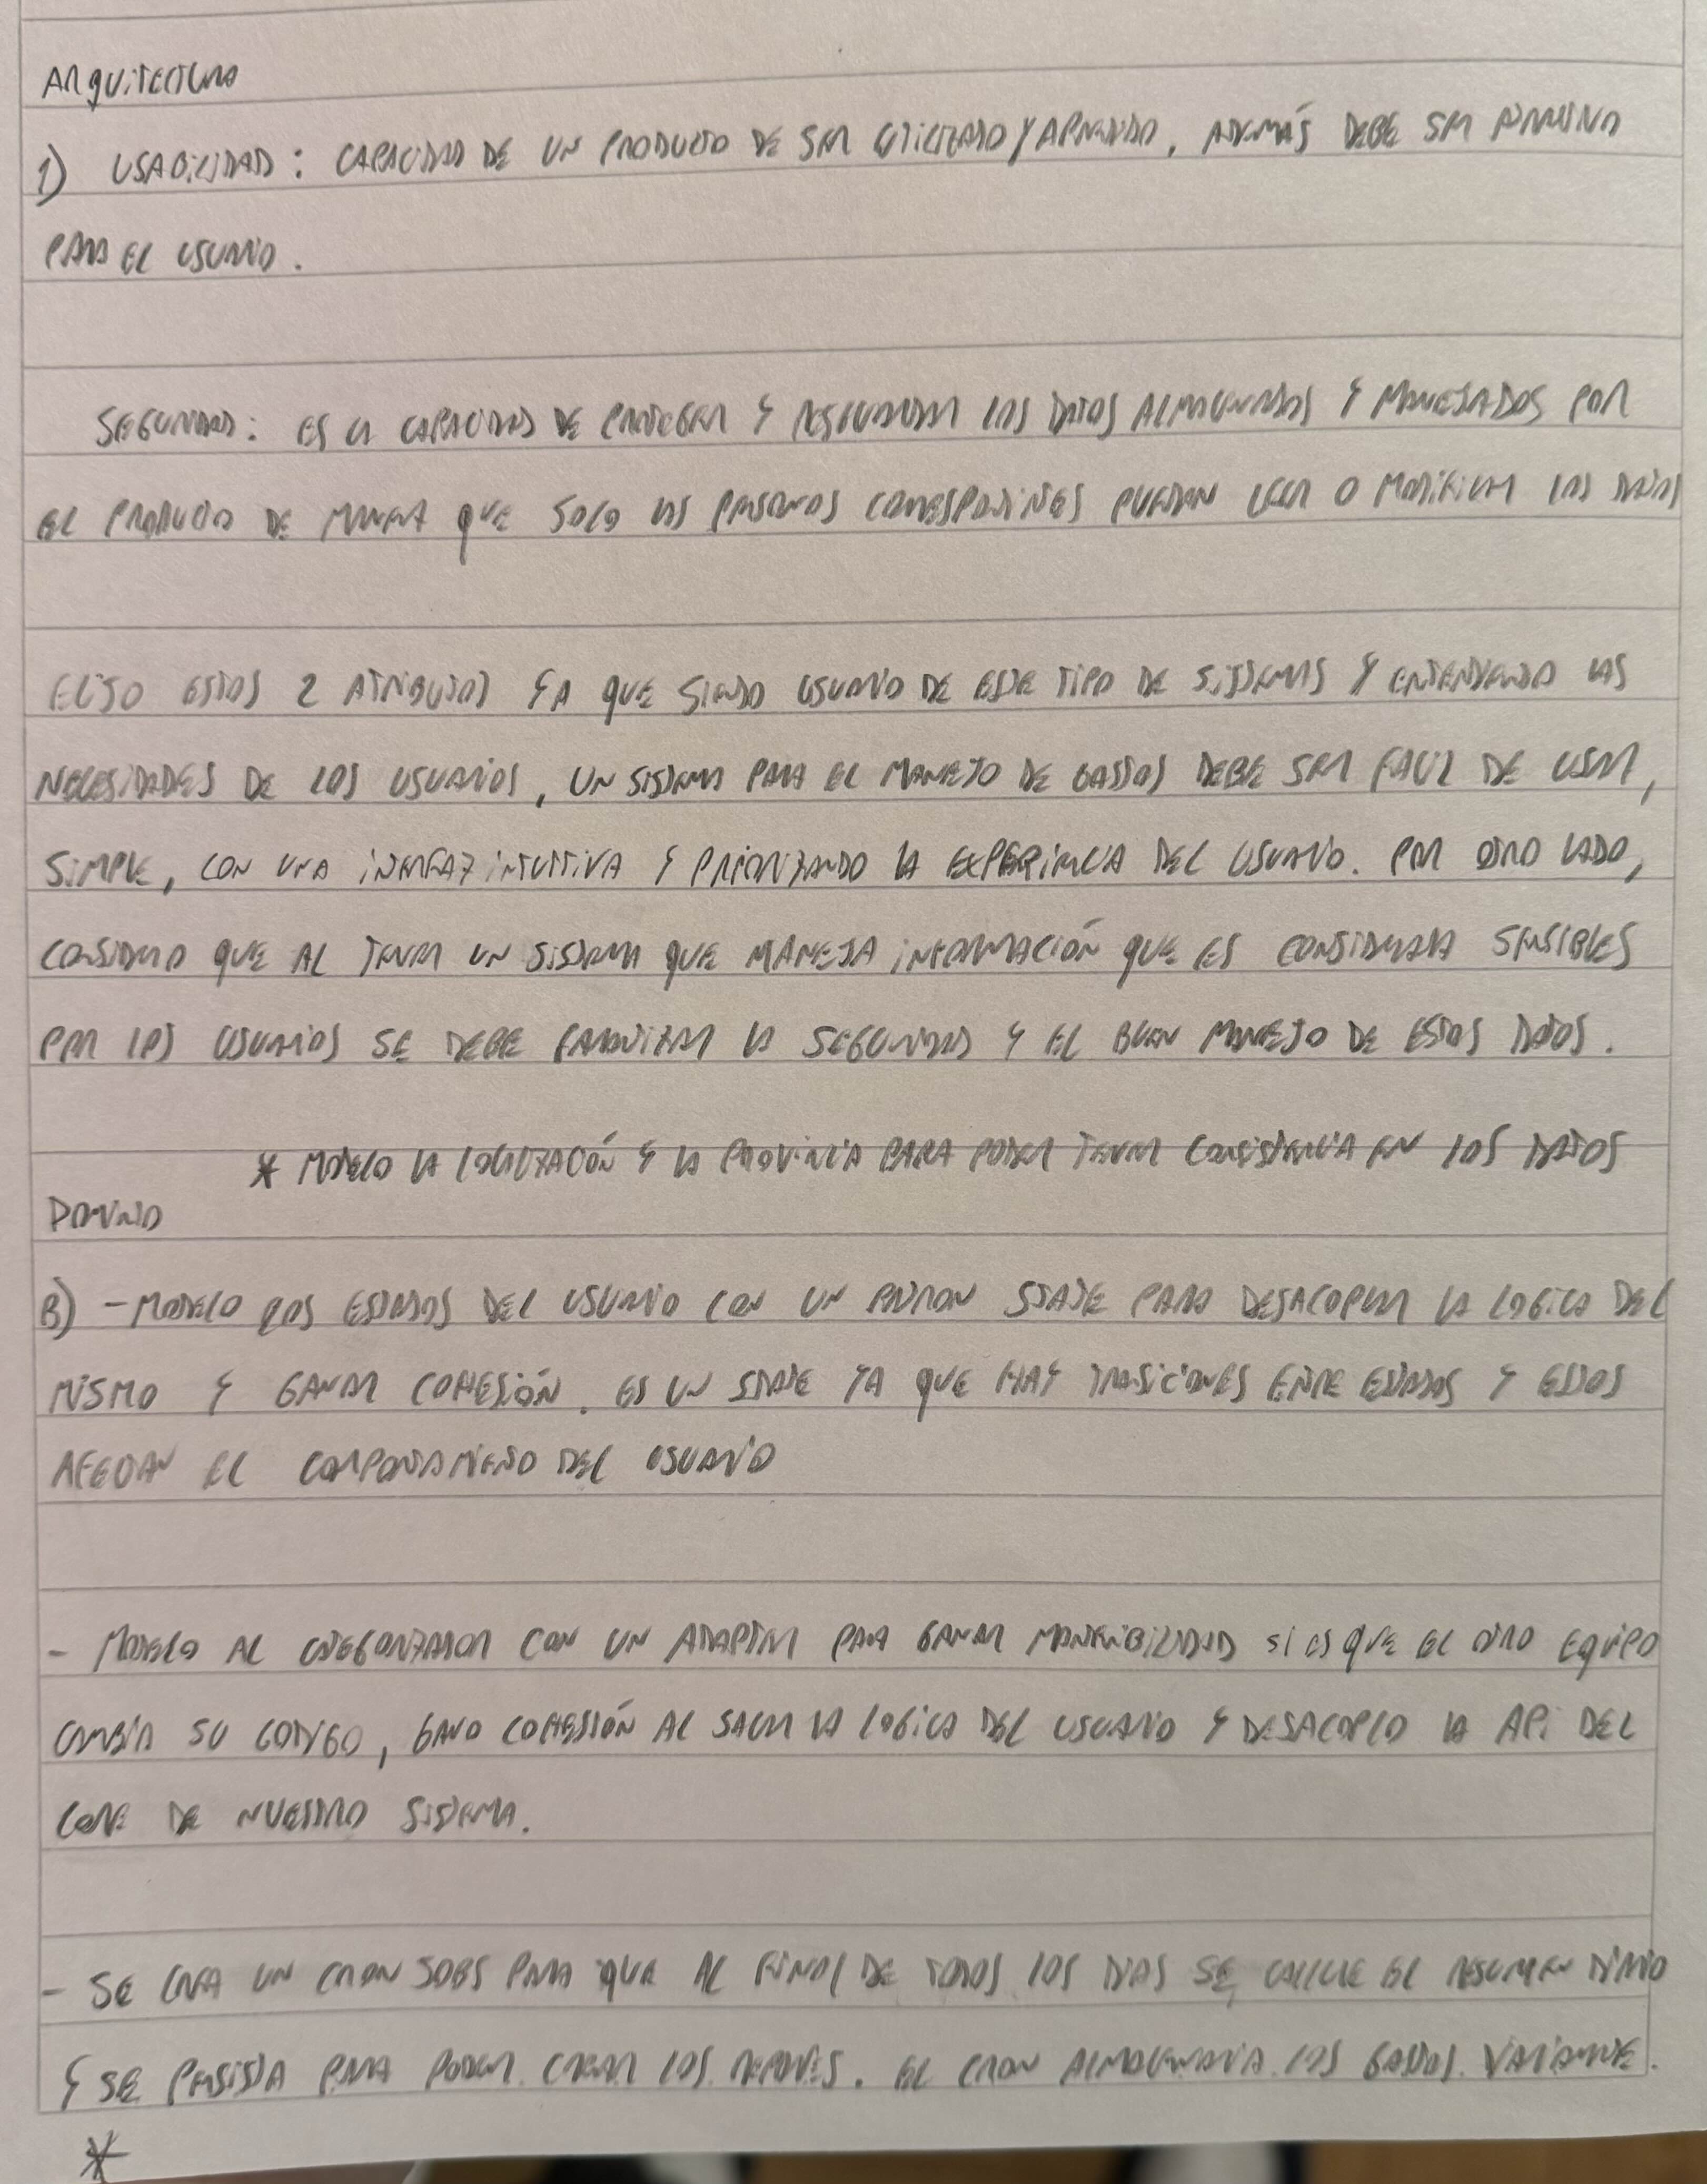 ARQUITECTURA
1) USABILIDAD: CAPACIDAD DE UN PRODUCTO DE SER UTILIZADO Y APRENDIDO, ADEMÁS DEBE SER
PARA EL USUARIO.
SEGURIDAD: ES LA CAPACIDAD DE PROTEGER Y RESGUARDAR LOS DATOS ALMACENADOS Y MANEJADOS POR
EL PRODUCTO DE MANERA QUE SOLO LAS PERSONAS CORRESPONDIENTES PUEDAN LEER O MODIFICAR LOS DATOS
ELIJO ESTOS 2 ATRIBUTOS YA QUE SIENDO USUARIO DE ESTE TIPO DE SISTEMAS Y ENTENDIENDO LAS
NECESIDADES DE LOS USUARIOS, UN SISTEMA PARA EL MANEJO DE GASTOS DEBE SER FACIL DE USAR,
SIMPLE, CON UNA INTERFAZ INTUITIVA Y PRIORIZANDO LA EXPERIENCIA DEL USUARIO. POR OTRO LADO,
CONSIDERO QUE AL TENER UN SISTEMA QUE MANEJA INFORMACIÓN QUE ES CONSIDERADA SENSIBLES
POR LOS USUARIOS SE DEBE GARANTIZAR LA SEGURIDAD Y EL BUEN MANEJO DE ESTOS DATOS.
* MODELO LA LOCALIZACIÓN Y LA PROVINCIA PARA PODER TENER CONSISTENCIA EN LOS DATOS
DOMINIO
B) - MODELO LOS ESTADOS DEL USUARIO CON UN PATRON STATE PARA DESACOPLAR LA LOGICA DEL
MISMO Y GANAR COHESIÓN. ES UN STATE YA QUE HAY TRANSICIONES ENTRE ESTADOS Y ESTOS
AFECTAN EL COMPORTAMIENTO DEL USUARIO
- MODELO AL CATEGORIZADOR CON UN ADAPTER PARA GANAR MANTENIBILIDAD SI ES QUE EL OTRO EQUIPO
CAMBIA SU CODIGO, GANO COHESIÓN AL SACAR LA LOGICA DEL USUARIO Y DESACOPLO LA API DEL
CORE DE NUESTRO SISTEMA.
- SE CREA UN CRON JOBS PARA QUE AL FINAL DE TODOS LOS DIAS SE CALCULE EL RESUMEN DIARIO
Y SE PERSISTA PARA PODER CREAR LOS REPORTES. EL CRON ALMACENARIA LOS GASTOS
*